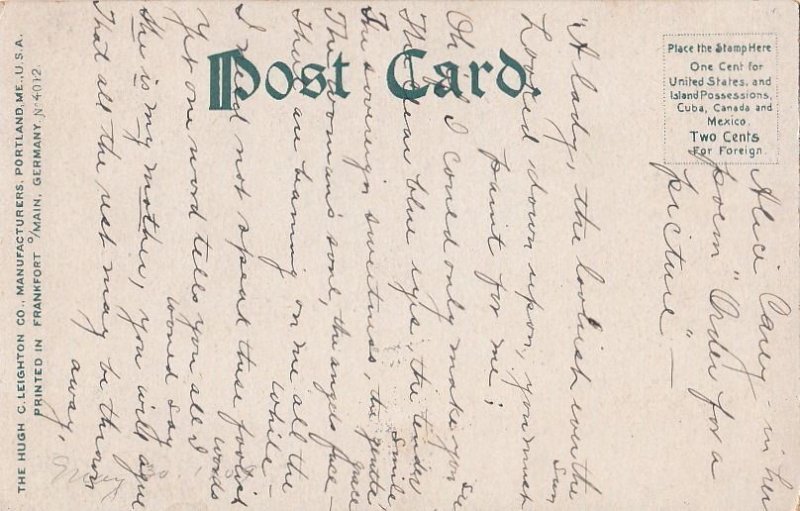 Post Card.
Place the Stamp Here
One Cent for
United States, and
Island Possessions,
Cuba, Canada and
Mexico.
Two Cents
For Foreign.
THE HUGH C. LEIGHTON CO., MANUFACTURERS, PORTLAND, ME., U.S.A.
PRINTED IN FRANKFORT O/MAIN, GERMANY. No 4012
Alice Carey - in her
poem "Order for a
picture" —
"A lady, the loveliest ever the
sun
Looked down upon, you must
paint for me;
Oh if I could only make you see
The clear blue eyes, the tender
smile,
The sovereign sweetness, the gentle
grace
The woman's soul, the angels face —
That are beaming on me all the
while —
I need not speak these foolish
words
Yet one word tells you all I
would say
She is my mother, you will agree
That all the rest may be thrown
away.